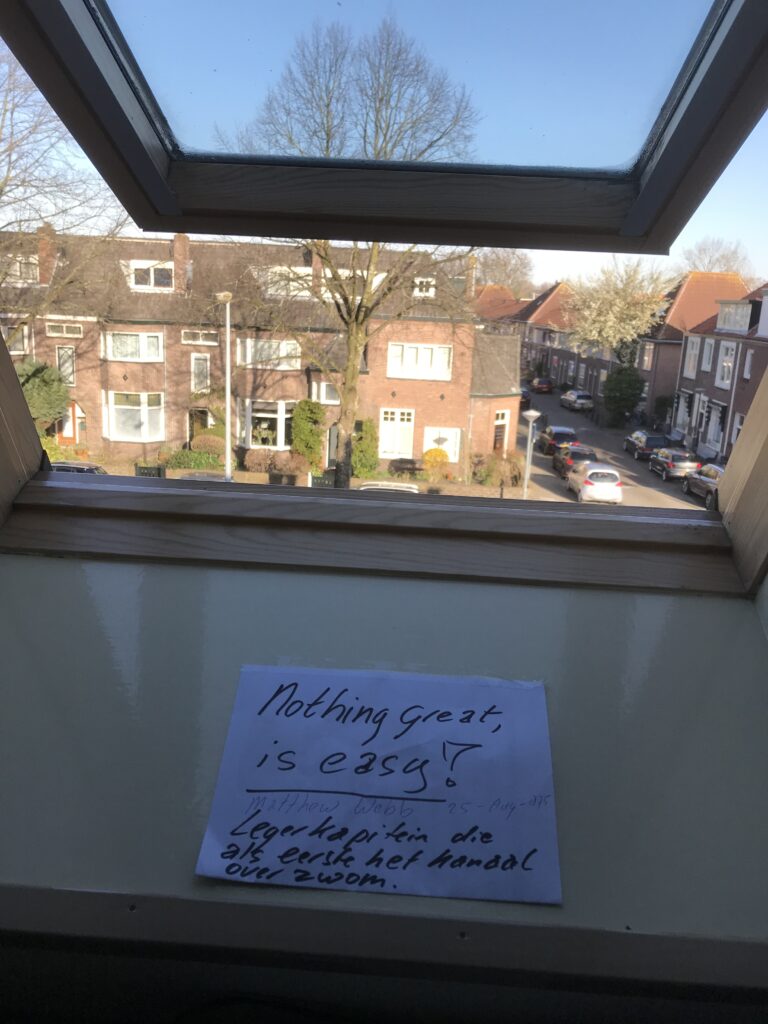 Nothing great,
is easy!?
Matthew Webb 25-Aug-1875
Legerkapitein die
als eerste het kanaal
over zwom.